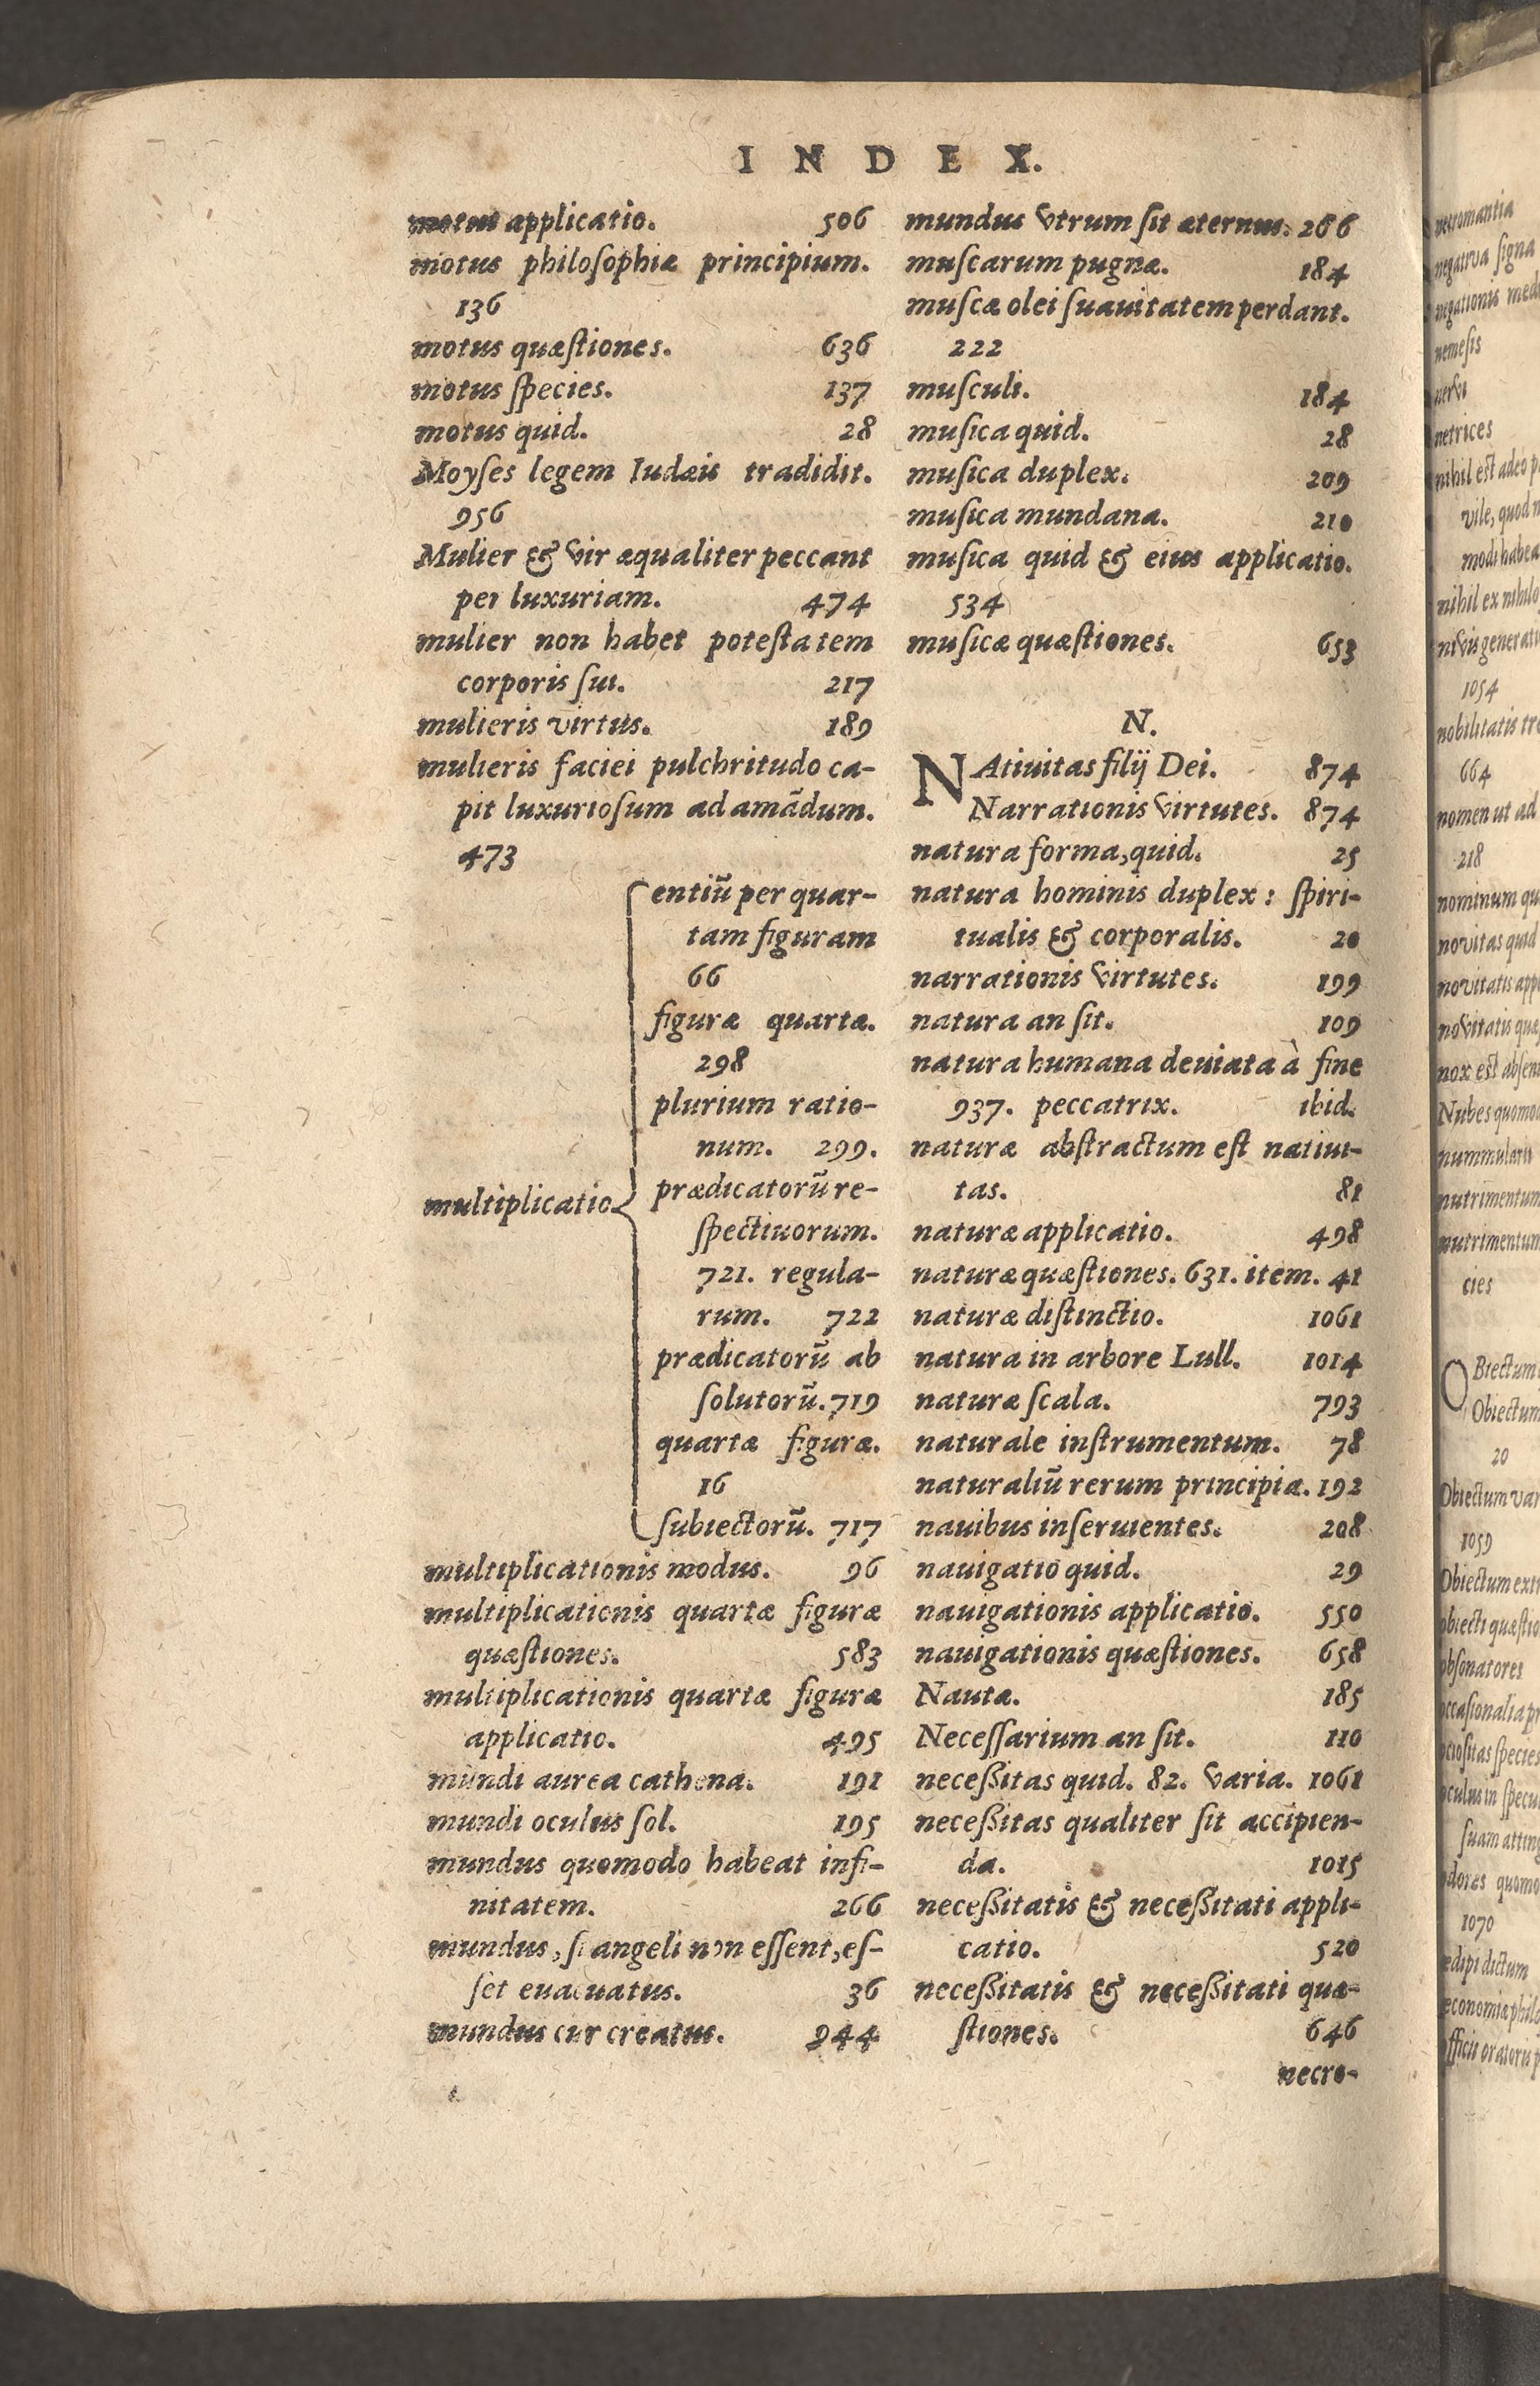 INDEX.
motus applicatio. 506
motus philosophiæ principium.
136
motus quæstiones. 636
motus species. 137
motus quid. 28
Moyses legem Iudæis tradidit.
956
Mulier & vir æqualiter peccant
per luxuriam. 474
mulier non habet potestatem
corporis sui. 217
mulieris virtus. 189
mulieris faciei pulchritudo ca-
pit luxuriosum ad amādum.
473
multiplicatio
entiū per quar-
tam figuram
66
figuræ quartæ.
298
plurium ratio-
num. 299.
prædicatorū re-
spectiuorum.
721. regula-
rum. 722
prædicatorū ab
solutorū. 719
quartæ figuræ.
16
subiectorū. 717
multiplicationis modus. 96
multiplicationis quartæ figuræ
quæstiones. 583
multiplicationis quartæ figuræ
applicatio. 495
mundi aurea cathena. 191
mundi oculus sol. 195
mundus quomodo habeat infi-
nitatem. 266
mundus, si angeli non essent, es-
set euacuatus. 36
mundus cur creatus. 944
mundus vtrum sit æternus. 266
muscarum pugnæ. 184
muscæ olei suauitatem perdant.
222
musculi. 184
musica quid. 28
musica duplex. 209
musica mundana. 210
musica quid & eius applicatio.
534
musicæ quæstiones. 653
N.
NAtiuitas filij Dei. 874
Narrationis virtutes. 874
natura forma, quid. 25
natura hominis duplex: spiri-
tualis & corporalis. 20
narrationis virtutes. 199
natura an sit. 109
natura humana deuiata à fine
937. peccatrix. ibid.
naturæ abstractum est natiui-
tas. 81
naturæ applicatio. 498
naturæ quæstiones. 631. item. 41
naturæ distinctio. 1061
natura in arbore Lull. 1014
naturæ scala. 793
naturale instrumentum. 78
naturaliū rerum principia. 192
nauibus inseruientes. 208
nauigatio quid. 29
nauigationis applicatio. 550
nauigationis quæstiones. 658
Nautæ. 185
Necessarium an sit. 110
necessitas quid. 82. varia. 1061
necessitas qualiter sit accipien-
da. 1015
necessitatis & necessitati appli-
catio. 520
necessitatis & necessitati quæ-
stiones. 646
necro-
necromantia
negativa signa
negationis
nemesis
nervi
netrices
nihil est adeo
vile, quod
modi
nihil ex nihilo
1054
nobilitatis
664
nomen ut ad
218
nominum
novitas quid
novitatis
novitatis
nox est
Nubes
nummularii
nutrimentum
nutrimentum
cies
OBiectum
Obiectum
20
Obiectum
1059
Obiectum
obiecti
obsonatores
species
oculus in
suam
odores
1070
dictum